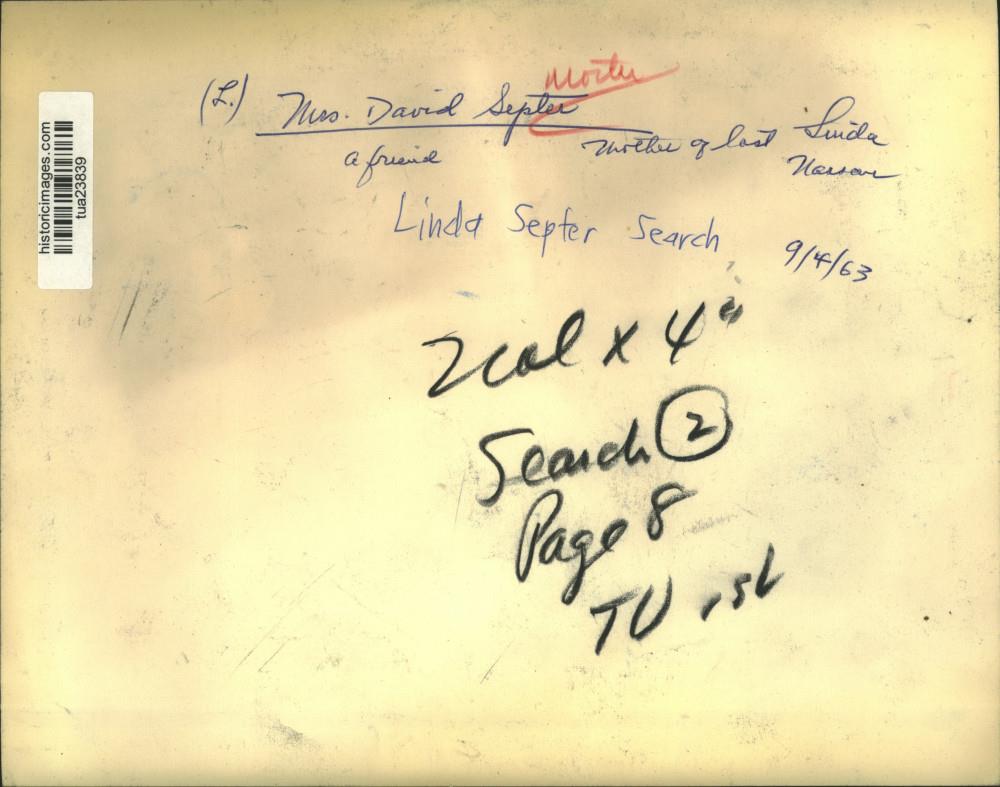 historicimages.com
tua23839
Mother
(L.) Mrs. David Septer
a friend
Mother of lost Linda
Linda Septer Search
9/4/63
2 col x 4"
Search 2
Page 8
TU 1st